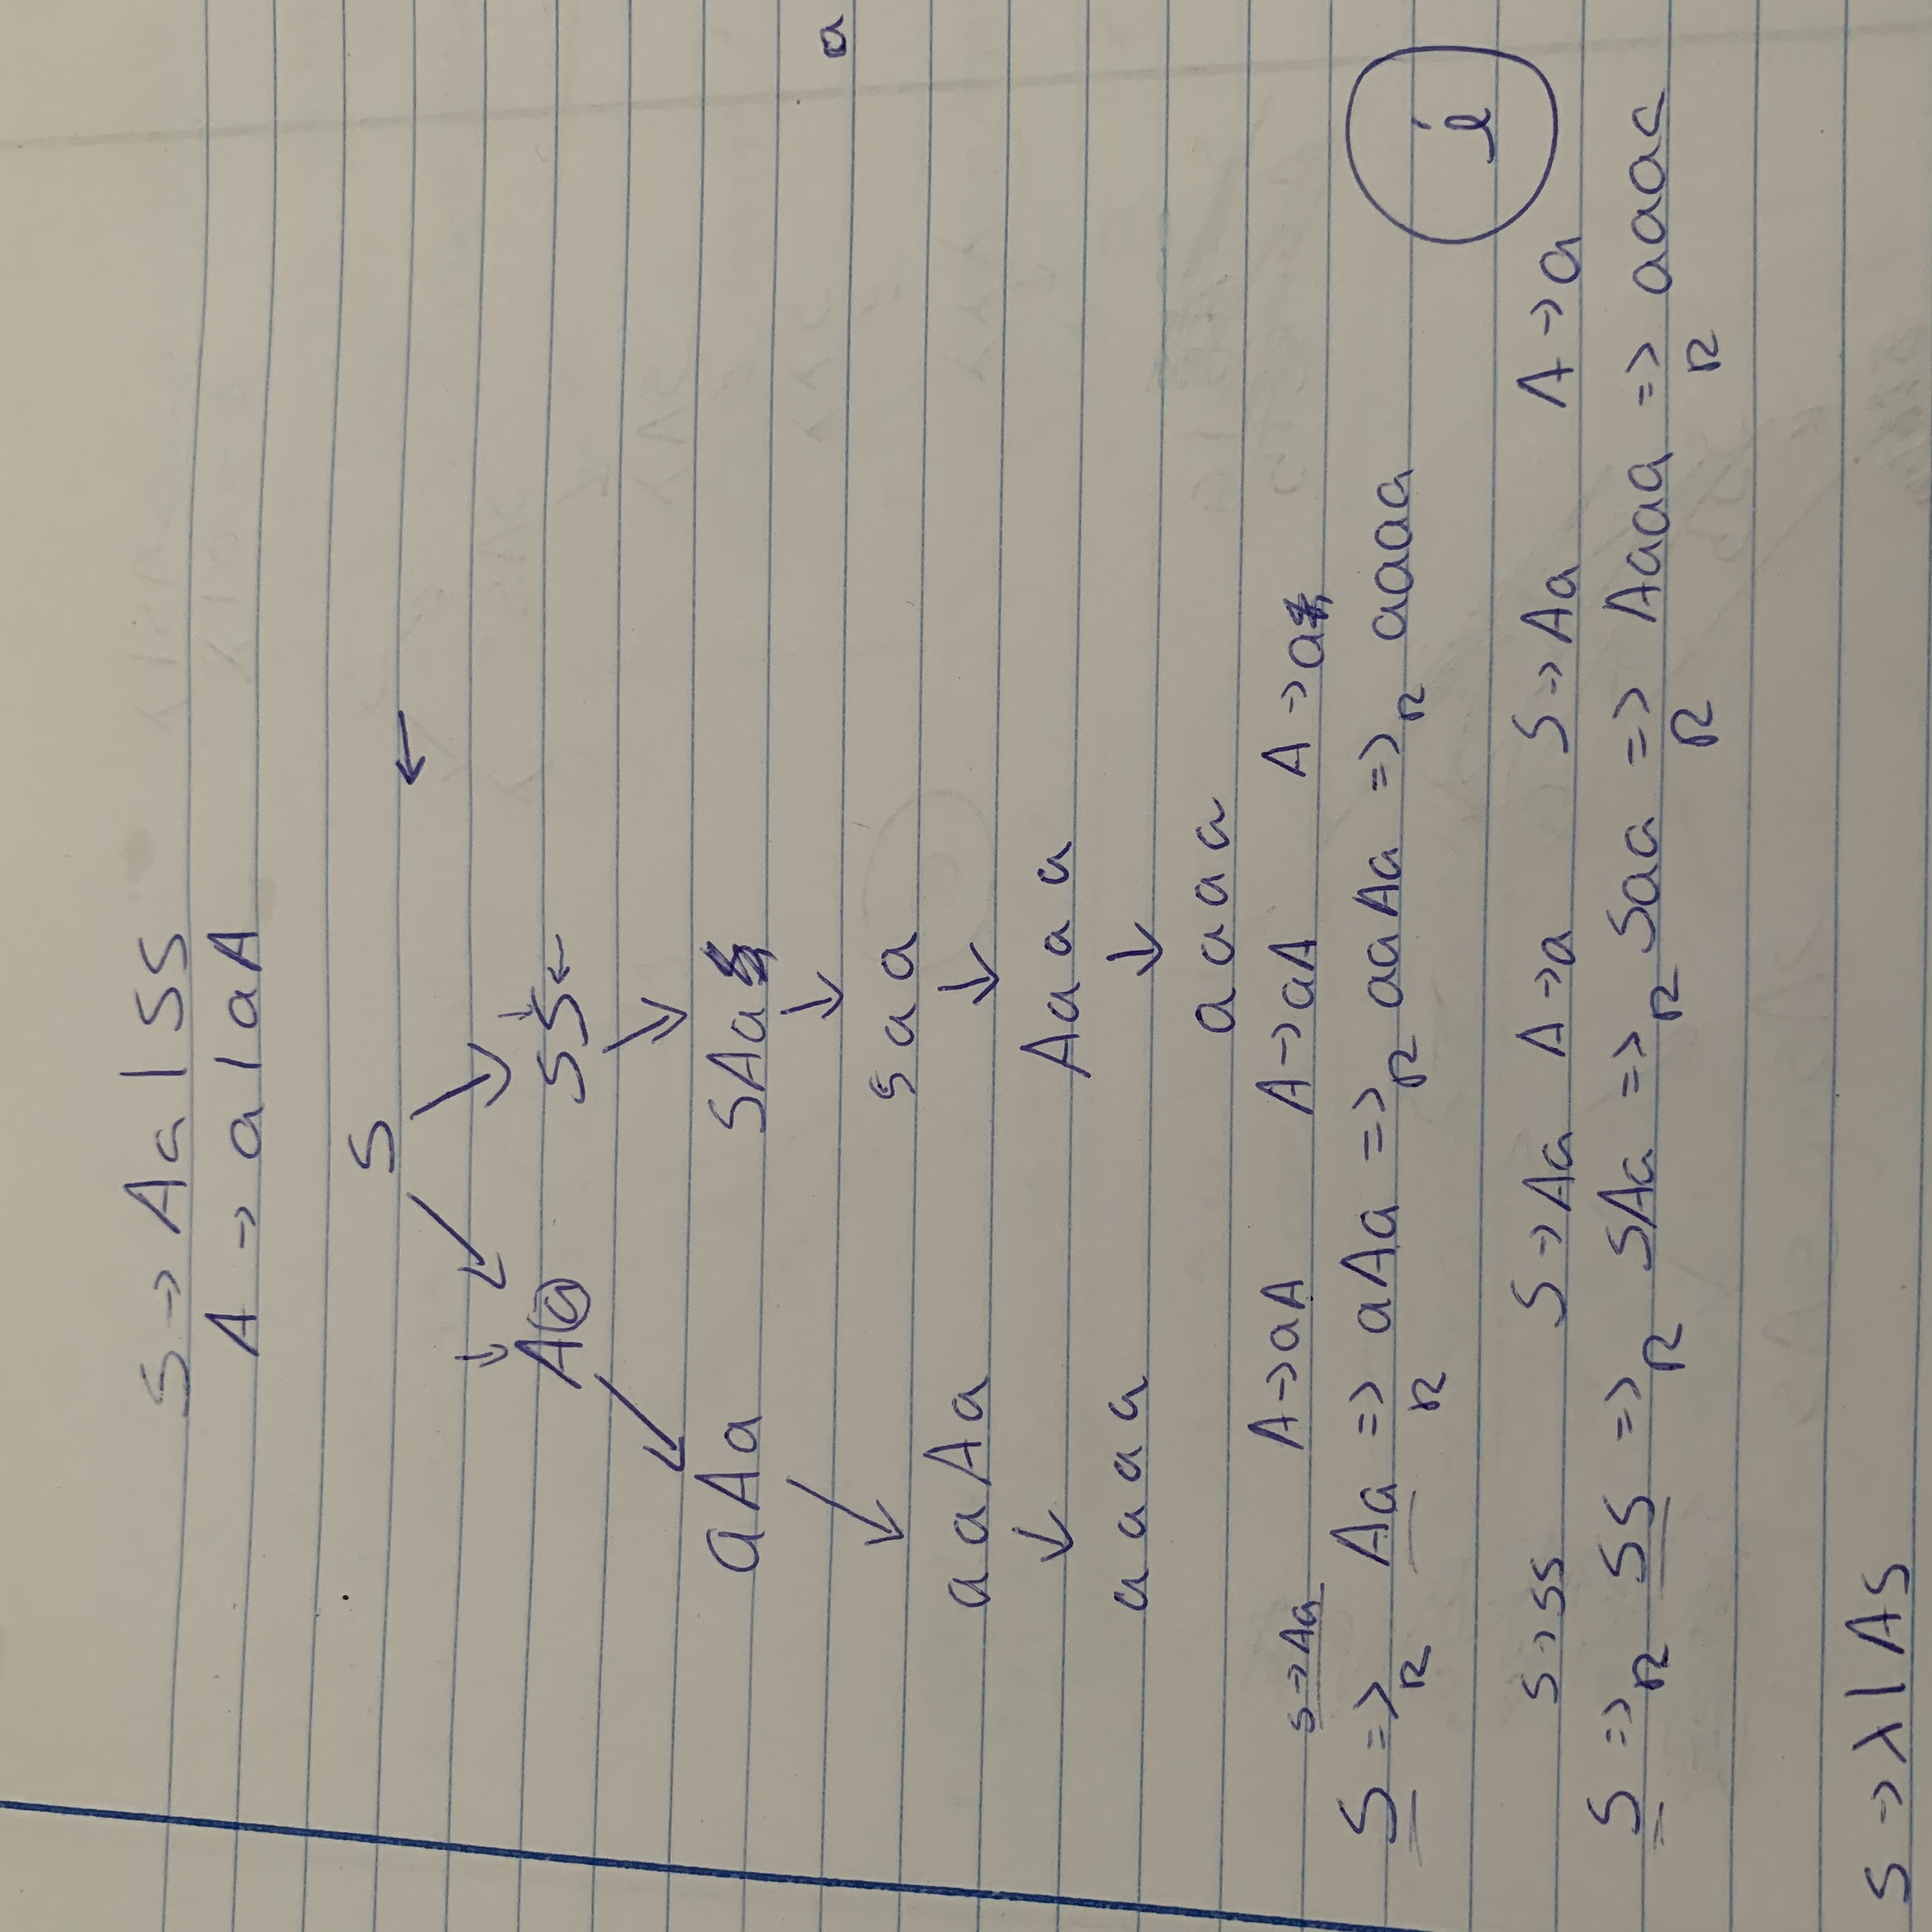 S → Aa | SS
A → a | aA
S
←
↓
A a ↓ S S ←
a A a S A a
a
S a a
a a A a
A a a a
a a a a
a a a a
S → Aa A → aA A → aA A → a
S =>R Aa =>R aAa =>R aaAa =>R aaaa
i
S → SS S → Aa A → a S → Aa A → a
S =>R SS =>R SAa =>R Saa =>R Aaaa =>R aaaa
S → λ | AS